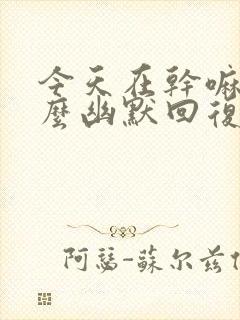 今天在幹嘛
麼幽默回復
阿瑟-蘇尔兹